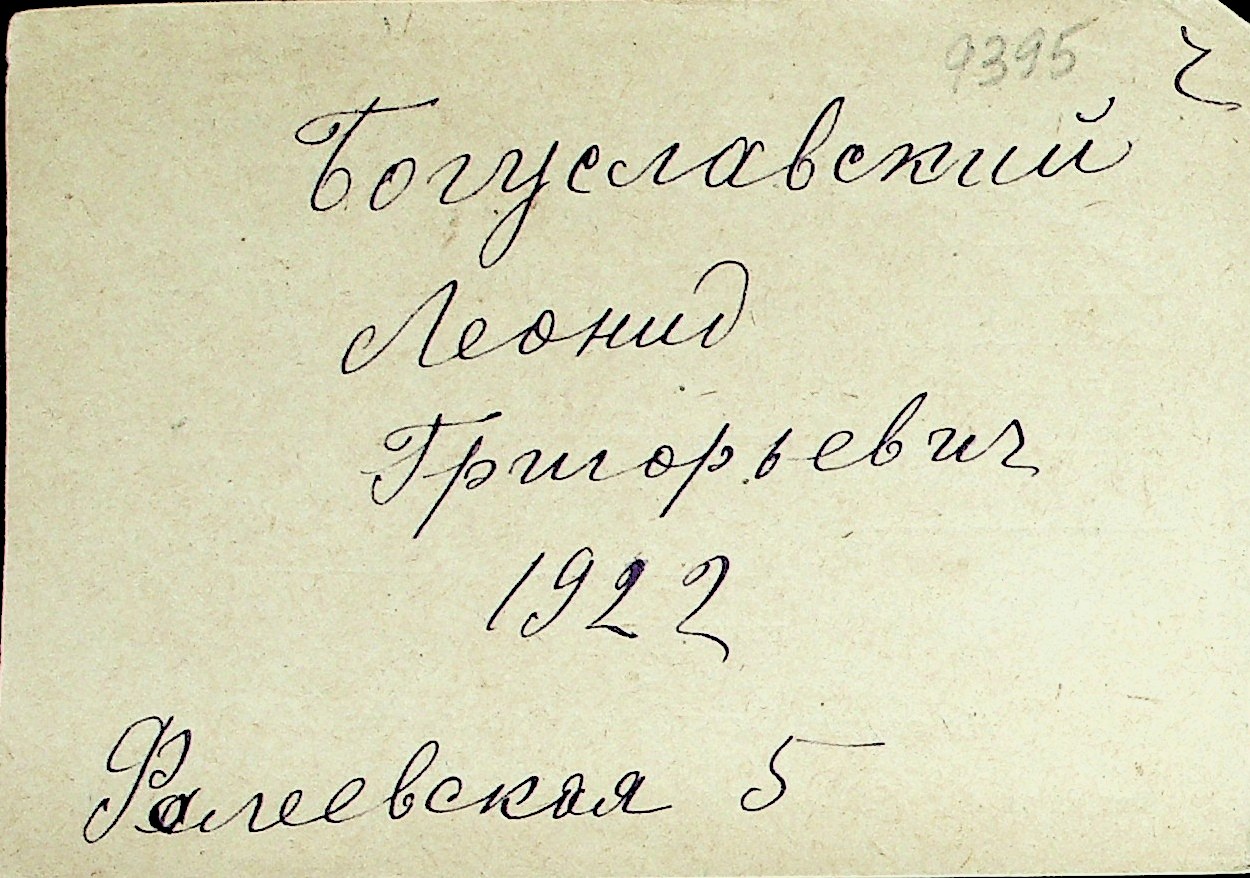 9395 ч
Богуславский
Леонид
Григорьевич
1922
Фалеевская 5